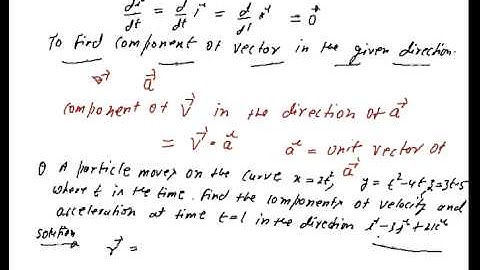 di/dt = d/dt j = d/dt k = 0
To find component of vector in the given direction.
v a
component of V in the direction of a
= V • a a = unit vector of a
Q A particle moves on the curve x = 2t², y = t²-4t, z = 3t-5
where t is the time. find the components of velocity and
acceleration at time t=1 in the direction i - 3j + 2k
solution v =